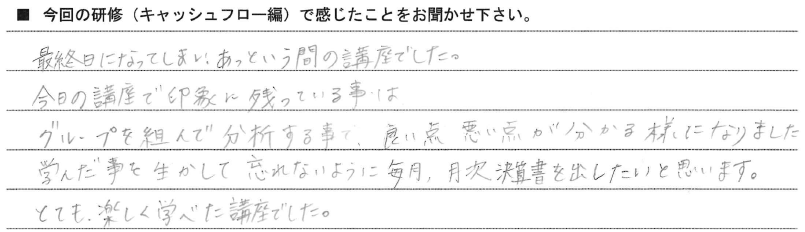 ■ 今回の研修（キャッシュフロー編）で感じたことをお聞かせ下さい。
最終日になってしまい、あっという間の講座でした。
今日の講座で印象に残っている事は
グループを組んで分析する事で、良い点 悪い点が分かる様になりました
学んだ事を生かして忘れないように毎月、月次決算書を出したいと思います。
とても、楽しく学べた講座でした。